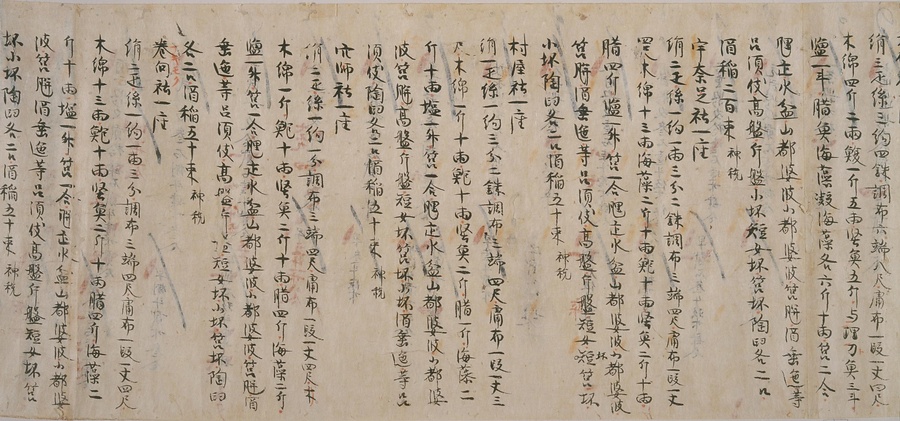 絹三疋絲三約四銖調布六端八尺庸布一段一丈四尺
木綿四斤二両鰒一斤五両堅魚五斤与理刀魚三斤
塩一斗腊魚海藻凝海藻各六斤十両筥二合
疋火盆山都婆波小都婆波筥瓶酒垂匜等
呂須伎高盤片盤小坏短女坏筥坏陶臼各二口
酒稲二百束 神税
宇奈足社一座
絹二疋絲一約一両三分二銖調布三端四尺庸布一段一丈
四尺木綿十三両海藻二斤十両鮑十両堅魚二斤十両
腊四斤塩一升筥一合疋火盆山都婆波小都婆波
筥瓶酒垂匜等呂須伎高盤片盤短女坏筥坏
小坏陶臼各二口酒稲五十束 神税
村屋社一座
絹一疋絲一約三分二銖調布三端四尺庸布一段一丈三
尺木綿一斤十両鮑十両堅魚二斤腊一斤海藻二
斤十両塩一升筥一合疋火盆山都婆波小都婆
波筥瓶高盤片盤短女坏筥坏小坏酒垂匜等呂
須伎陶臼各二口酒稲五十束 神税
穴師社一座
絹二疋絲一約一分調布三端四尺庸布一段一丈四尺木
木綿一斤鮑十両堅魚二斤十両腊四斤海藻二斤
塩一升筥一合疋火盆山都婆波小都婆波筥瓶酒
垂匜等呂須伎高盤片盤短女坏小坏筥坏陶臼
各二口酒稲五十束 神税
巻向社一座
絹二疋絲一約一両三分調布三端四尺庸布一段一丈四尺
木綿十三両鮑十両堅魚二斤十両腊四斤海藻二
斤十両塩一升筥一合疋火盆山都婆波小都婆
波筥瓶酒垂匜等呂須伎高盤片盤短女坏筥
坏小坏陶臼各二口酒稲五十束 神税